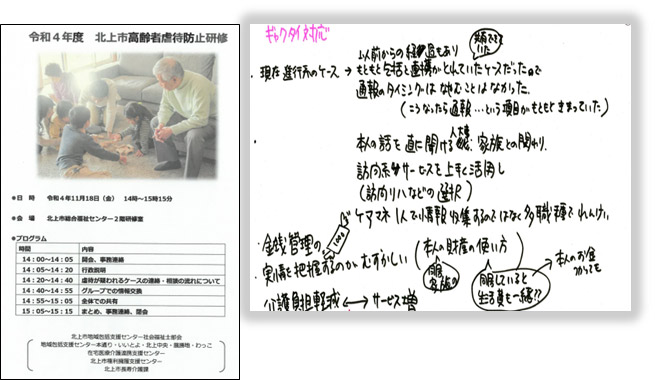 令和４年度　北上市高齢者虐待防止研修
●日　時　令和４年11月18日（金）　14時～15時15分
●会　場　北上市総合福祉センター２階研修室
●プログラム
時間　内容
14：00～14：05　開会、事務連絡
14：05～14：20　行政説明
14：20～14：40　虐待が疑われるケースの連絡・相談の流れについて
14：40～14：55　グループでの情報交換
14：55～15：05　全体での共有
15：05～15：15　まとめ、事務連絡、閉会
北上市地域包括支援センター社会福祉士部会
地域包括支援センター本通り・いいとよ・北上中央・展勝地・わっこ
在宅医療介護連携支援センター
北上市権利擁護支援センター
北上市長寿介護課
ギャクタイ対応
以前からの経過もあり
共有できていた
・現在進行系のケース → もともと包括と連携がとれていたケースだったので
通報のタイミングはなやむことはなかった.
(こうなったら通報…という項目がもともときまっていた)
本人の話を直に聞ける人大事. 家族との関わり.
訪問系サービスを上手く活用し
(訪問リハなどの選択)
ケアマネ1人で情報収集するのではなく多職種でれんけい
・金銭管理の
実情を把握するのがむずかしい (本人の財産の使い方)
同居家族の
同居していると生活費も一緒??
→本人のお金
つかっても
・介護負担軽減 ←→ サービス増